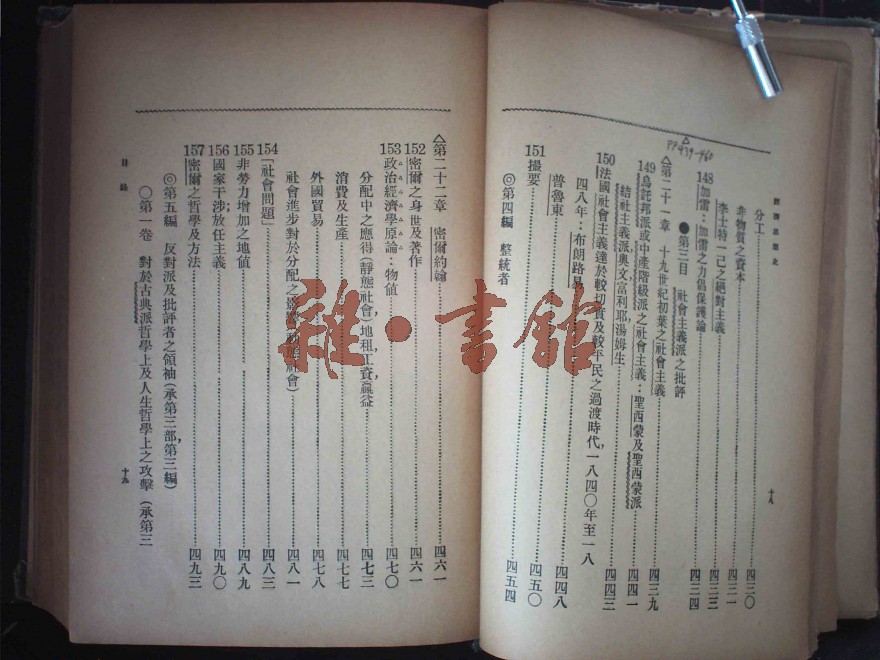 經濟思想史
分工……四二〇
非物質之資本……四二一
李士特一己之絕對主義……四二三
148 加雷：加雷之力倡保護論……四二四
●第三目 社會主義派之批評
△第二十一章 十九世紀初葉之社會主義
PP439-460
149 烏託邦派或中產階級派之社會主義：聖西蒙及聖西蒙派……四三九
結社主義派奧文富利耶湯姆生……四四一
150 法國社會主義達於較切實及較平民之過渡時代，一八四〇年至一八
四八年：布朗路易……四四三
普魯東……四四八
151 撮要……四五〇
◎第四編 整統者……四五四
十八
△第二十二章 密爾約翰……四六一
152 密爾之身世及著作……四六一
153 政治經濟學原論：物值……四七〇
分配中之應得(靜態社會)地租工資贏益……四七三
消費及生產……四七七
外國貿易……四七八
社會進步對於分配之影響(動態社會)……四八一
154 「社會問題」……四八三
155 非勞力增加之地值……四八九
156 國家干涉放任主義……四九〇
157 密爾之哲學及方法……四九三
◎第五編 反對派及批評者之領袖(承第三部，第三編)
〇第一卷 對於古典派哲學上及人生哲學上之攻擊 (承第三
目錄
十九
雜·書館